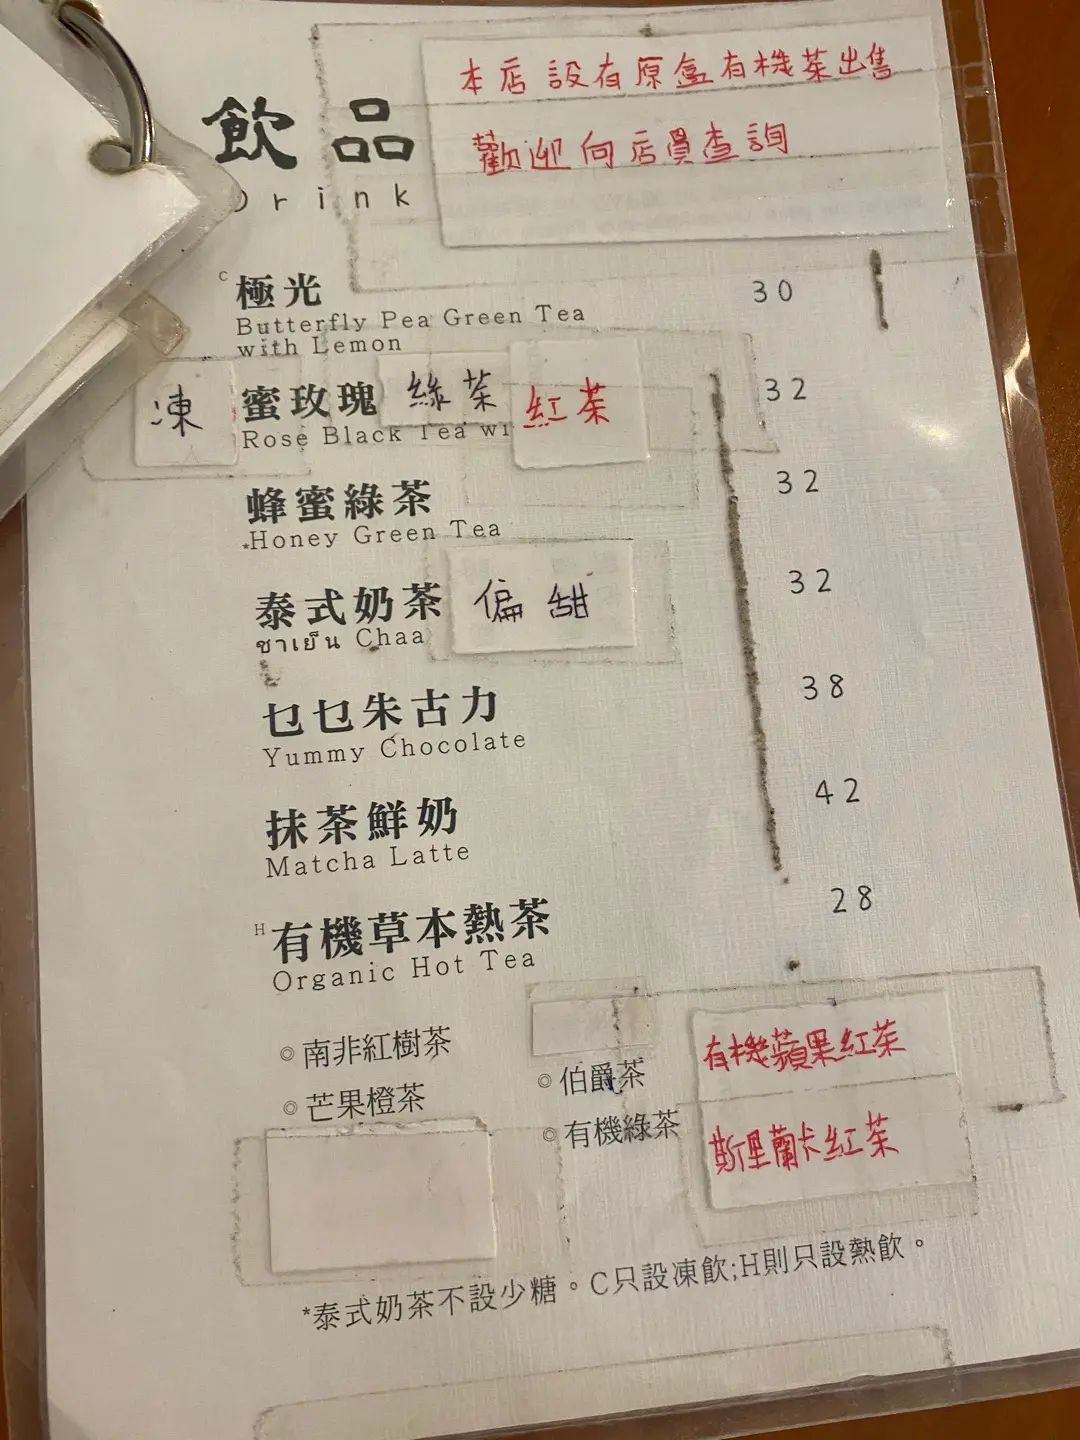 本店設有原盒有機茶出售
歡迎向店員查詢
飲品
Drink
C 極光 30
Butterfly Pea Green Tea
with Lemon
凍 蜜玫瑰 綠茶 紅茶 32
Rose Black Tea wi
蜂蜜綠茶 32
*Honey Green Tea
泰式奶茶 偏甜 32
ชาเย็น Chaa
乜乜朱古力 38
Yummy Chocolate
抹茶鮮奶 42
Matcha Latte
H 有機草本熱茶 28
Organic Hot Tea
◎南非紅樹茶
◎芒果橙茶
◎伯爵茶
◎有機綠茶
有機蘋果紅茶
斯里蘭卡紅茶
*泰式奶茶不設少糖。C只設凍飲;H則只設熱飲。